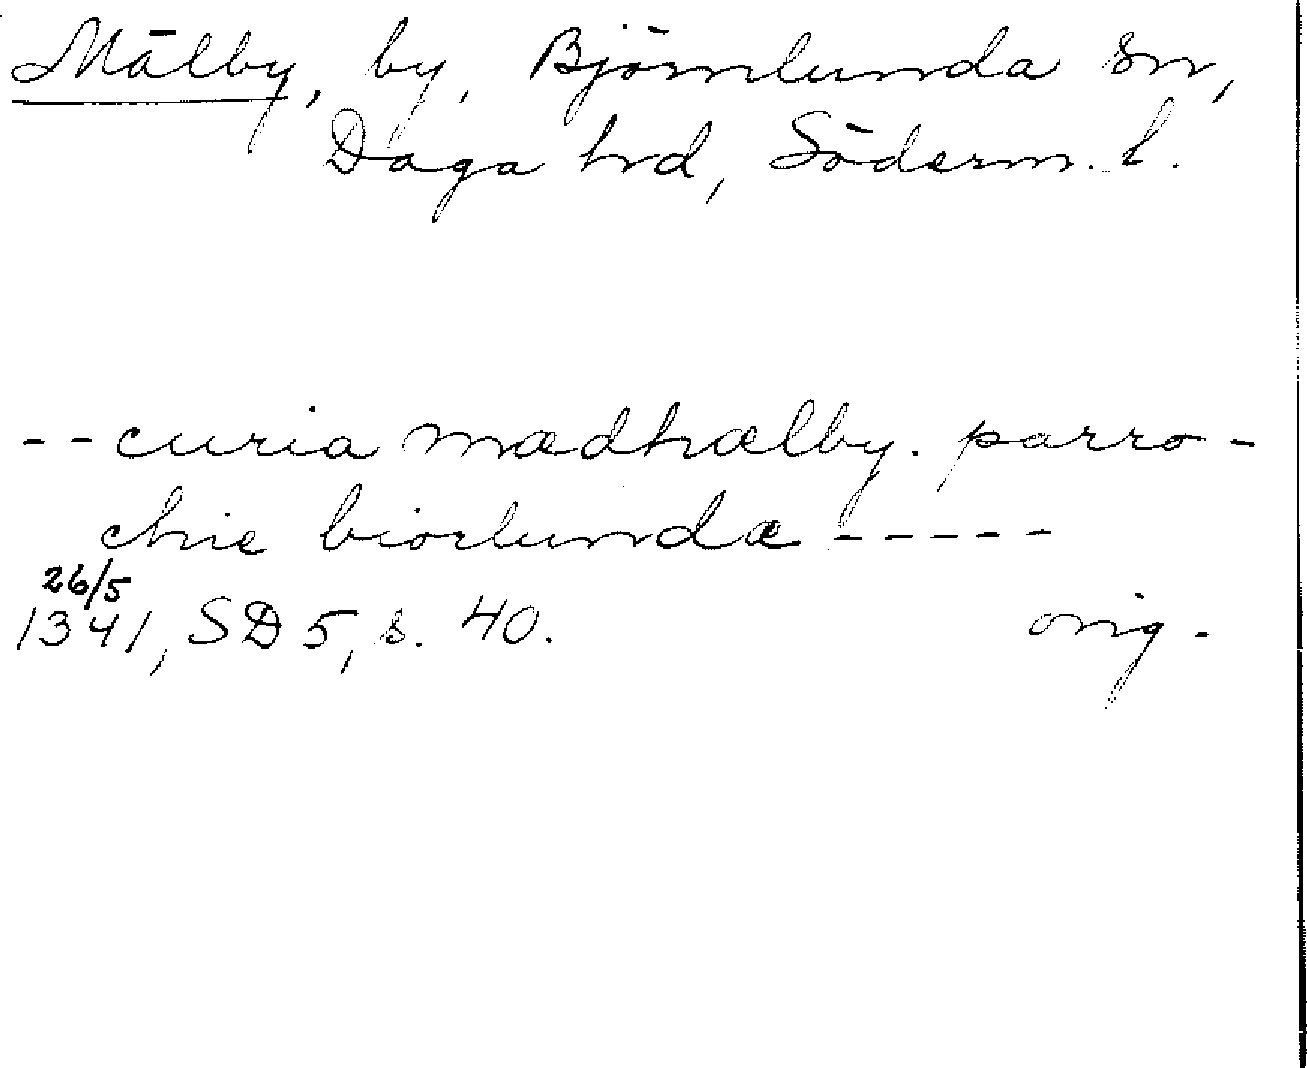 Mälby, by, Björnlunda sn,
Daga hd, Söderm. l.
--curia mædhælby. parro-
chie biorlundæ-----
26/5
1341, SD 5, s. 40. orig.